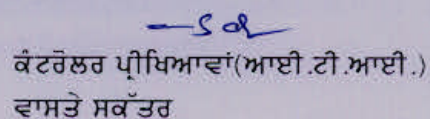 —Sd
ਕੰਟਰੋਲਰ ਪ੍ਰੀਖਿਆਵਾਂ(ਆਈ.ਟੀ.ਆਈ.)
ਵਾਸਤੇ ਸਕੱਤਰ